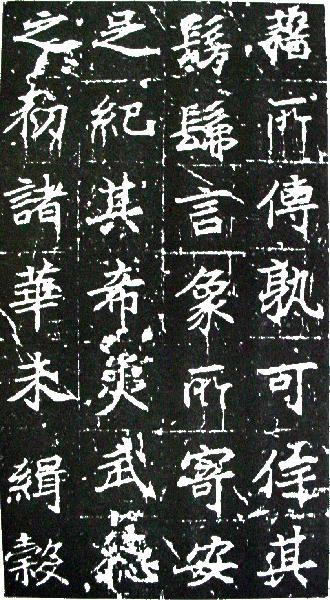 藉所傳孰可侔其
髣髴言象所寄安
足紀其希夷武
之初諸華未緝穀